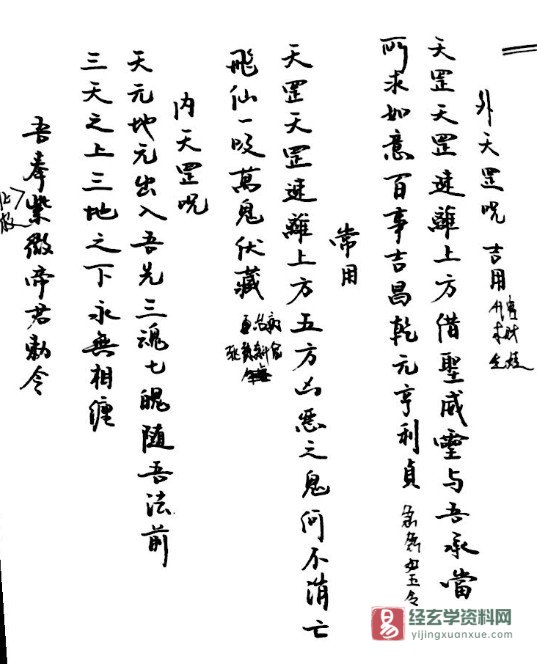 外天罡咒 吉用
天罡天罡速離上方借聖威靈与吾承當
所求如意百事吉昌乾元亨利貞
常用
天罡天罡速離上方五方凶惡之鬼何不消亡
飛仙一吸萬鬼伏藏
内天罡咒
天元地元出入吾先三魂七魄随吾法前
三天之上三地之下永無相纏
吾奉紫微帝君勅令
易
经玄学资料网
yijingxuanxue.com